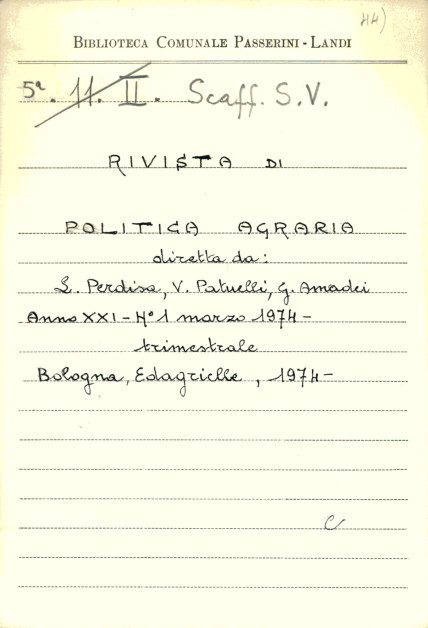 44)
BIBLIOTECA COMUNALE PASSERINI-LANDI
5ª. 11. II. Scaff. S.V.
RIVISTA DI
POLITICA AGRARIA
diretta da:
L. Perdisa, V. Patuelli, G. Amadei
Anno XXI - Nº 1 marzo 1974 -
trimestrale
Bologna, Edagricle, 1974 -
C